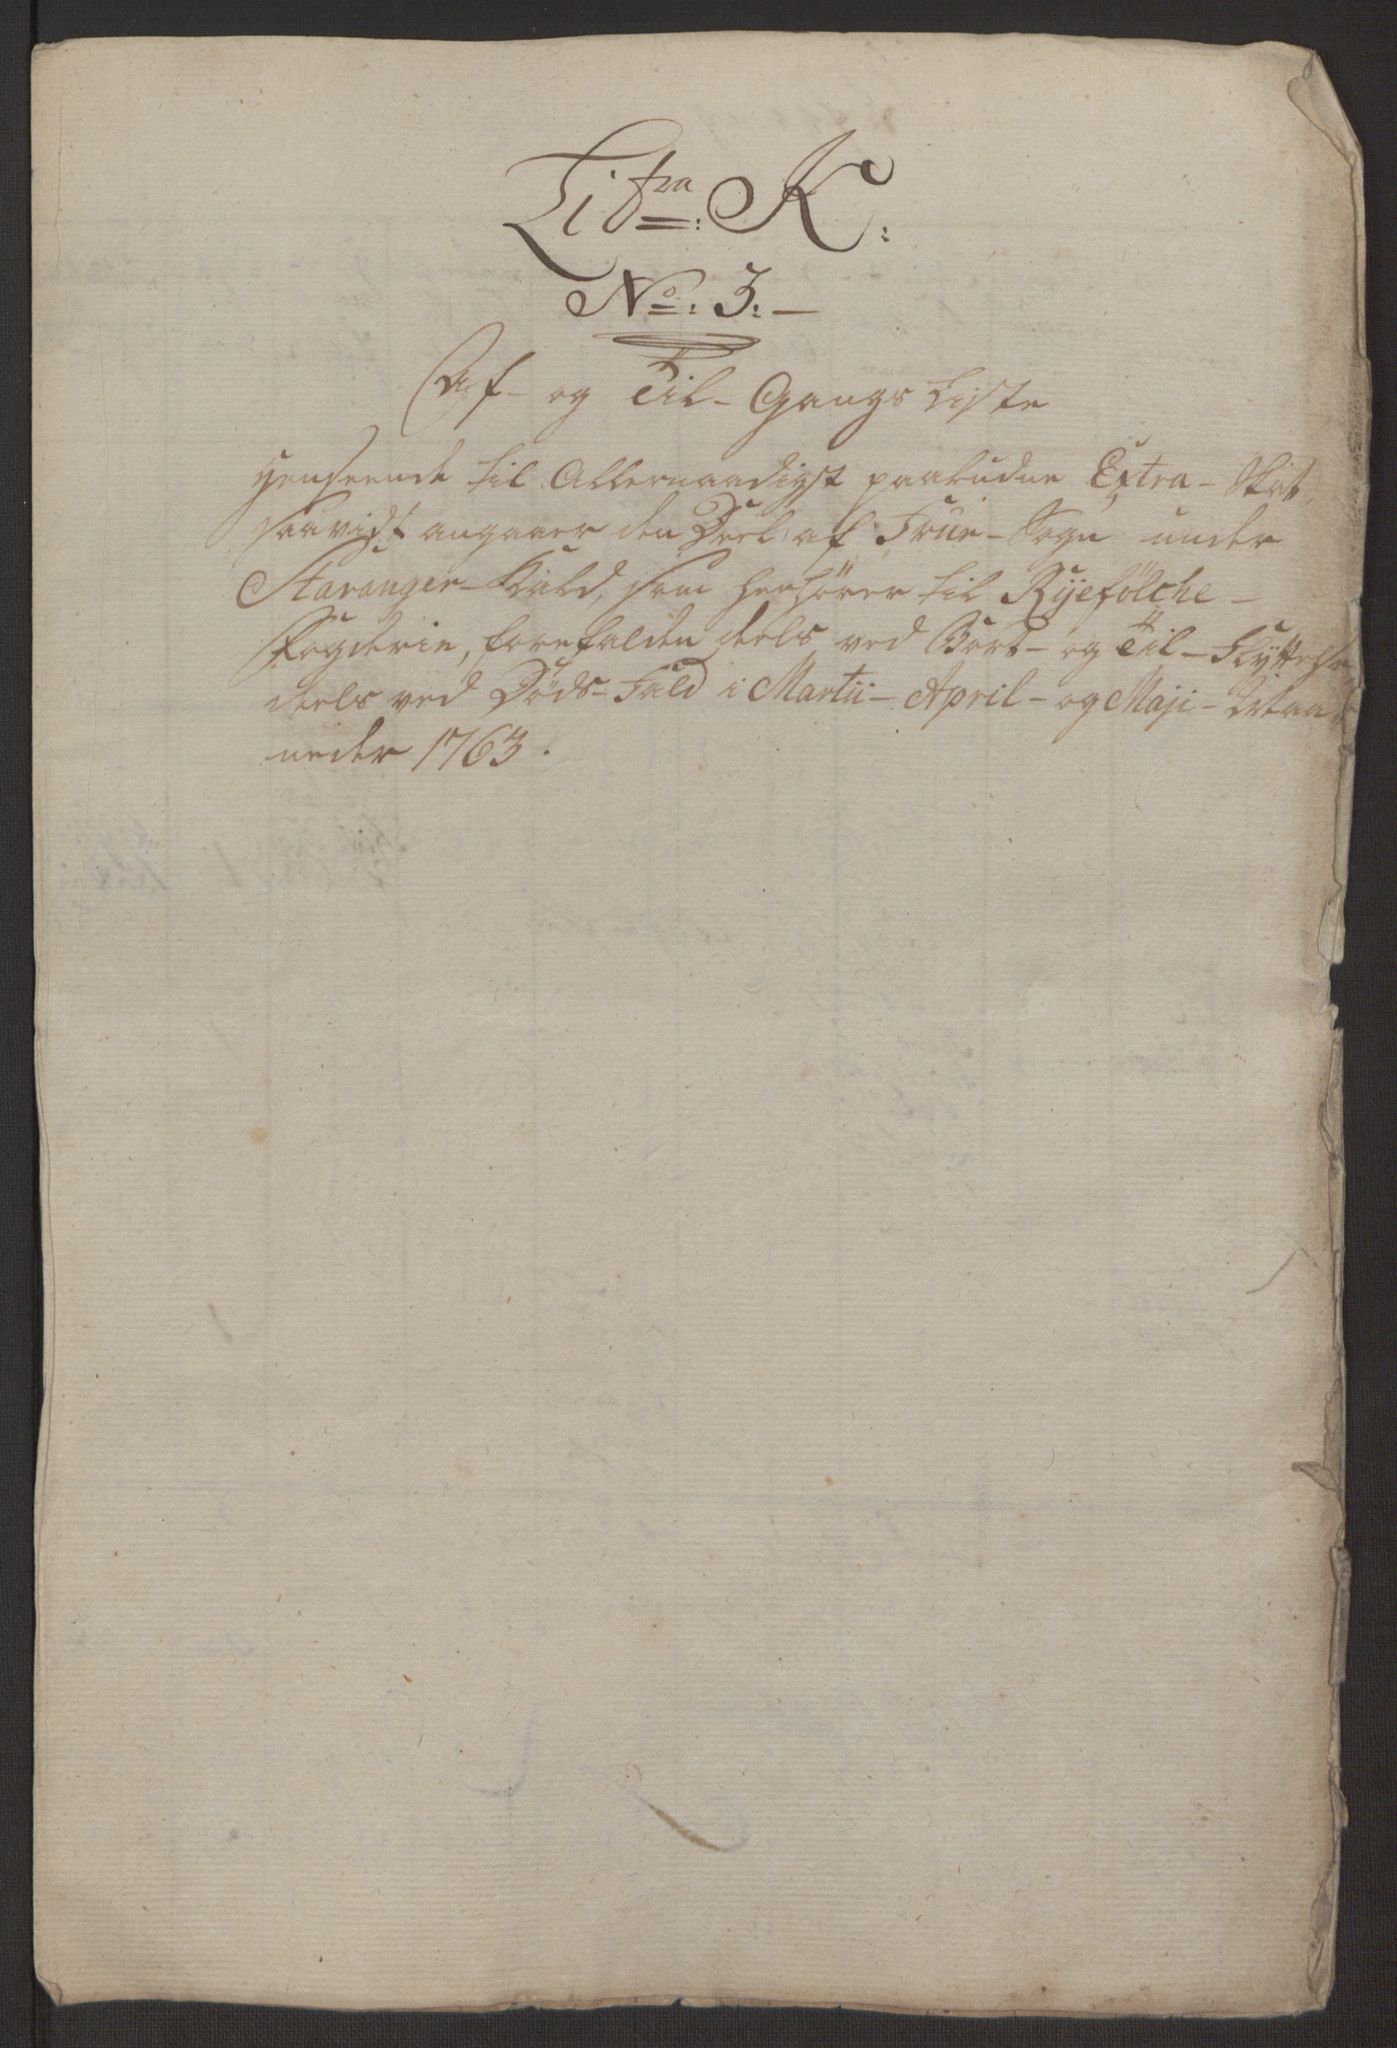 Litra: K:
No: 3: —
Af- og Til-Gangs Liste
henseende til Allernaadigst paabudne Extra-Skat,
saavidt angaaer den Deel af Frue-Sogn under
Stavanger-Kald, som henhører til Ryefölche-
Fogderie, forefalden deels ved Bort- og Til-Flyttelse,
deels ved Døds-Fald i Martii- April- og Maji- Maa-
neder 1763.